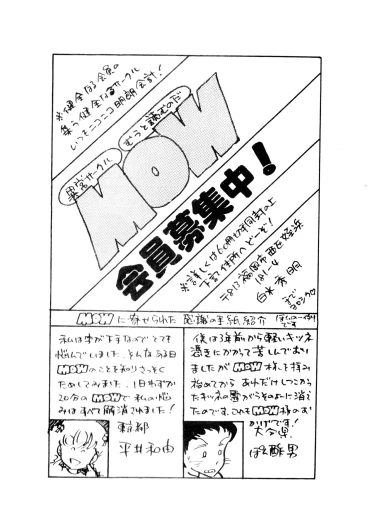 ※健全なる会員の
集う健全なサークル
いつもニコニコ明朗会計!
異常サークル
むうと読むのだ
MOW
会員募集中!
※詳しくは60円切手同封の上
上記住所へどーぞ!
〒812 福岡市西区姪浜
白木秀明
まで
ヨロシク
MOWに寄せられた感謝の手紙紹介
ほんの一例
です
私は字が下手なのでとても
悩んでいました。そんなある日
MOWのことを知りさっそく
ためしてみました。1日わずか
20分のMOWで私の悩
みはすべて解消されました!
東京都
平井和由
僕は3年前から軽いキツネ
憑きにかかって苦しんでおり
ましたがMOW様を拝み
始めてからあれだけしつこかっ
たキツネの霊がうそのように消え
たのです。これもMOW様のお
かげです!
大分県
ぽん酢男